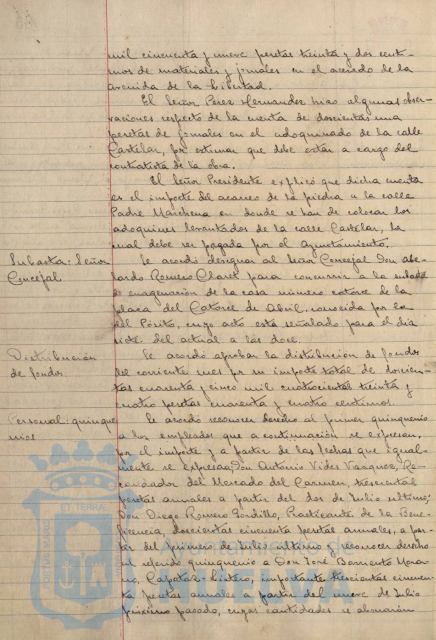 mil cincuenta y nueve pesetas treinta y dos centi-
mos de materiales y jornales en el acerado de la
avenida de la Libertad.
El Señor Perez Hernandez hizo algunas obser-
vaciones respecto de la cuenta de doscientas una
pesetas de jornales en el adoquinado de la calle
Castelar, por estimar que debe estar a cargo del
contratista de la obra.
El Señor Presidente explicó que dicha cuenta
es el importe del acarreo de la piedra a la calle
Padre Marchena en donde se han de colocar los
adoquines levantados de la calle Castelar, la
cual debe ser pagada por el Ayuntamiento.
Subasta: Señor
Concejal
Se acordó designar al Señor Concejal Don Abe-
lardo Romero Claret para concurrir a la subasta
de enagenación de la casa número catorce de la
plaza del Catorce de Abril, conocida por la
del Pósito, cuyo acto está señalado para el dia
siete del actual a las doce.
Distribución
de fondos
Se acordó aprobar la distribución de fondos
del corriente mes por su importe total de doscien-
tas cuarenta y cinco mil cuatrocientas treinta y
cuatro pesetas cuarenta y cuatro centimos.
Personal: quinque
nios
Se acordó reconocer derecho al primer quinquenio
a los empleados que a continuación se expresan,
por el importe y a partir de las fechas que igual-
mente se expresan, Don Antonio Vides Vazquez, Re-
caudador del Mercado del Carmen, trescientas
pesetas anuales a partir del dos de Julio ultimo;
Don Diego Romero Gordillo, Practicante de la Bene-
ficencia, doscientas cincuenta pesetas anuales, a par-
tir del primero de Julio ultimo y reconocer derecho
al segundo quinquenio a Don José Barniento Mora-
no, Capataz listero, importante trescientas cincuen-
ta pesetas anuales a partir del nueve de Julio
proximo pasado, cuyas cantidades se abonarán
Ayuntamiento de